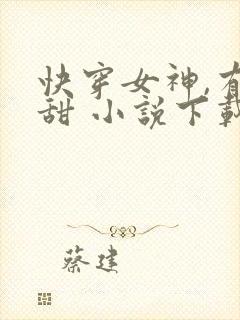 快穿女神,有
甜 小說下載
蔡建